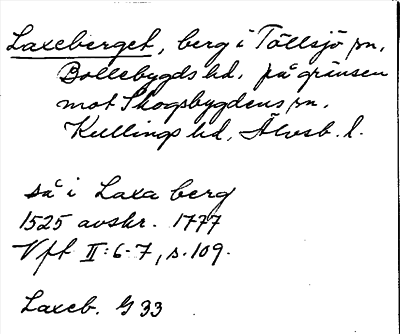 Laxeberget, berg i Töllsjö sn,
Bollebygds hd, på gränsen
mot Skogsbygdens sn,
Kullings hd, Älvsb. l.
så i Laxa berg
1525 avskr. 1777
Vft II:6-7, s.109.
Laxeb. G 33